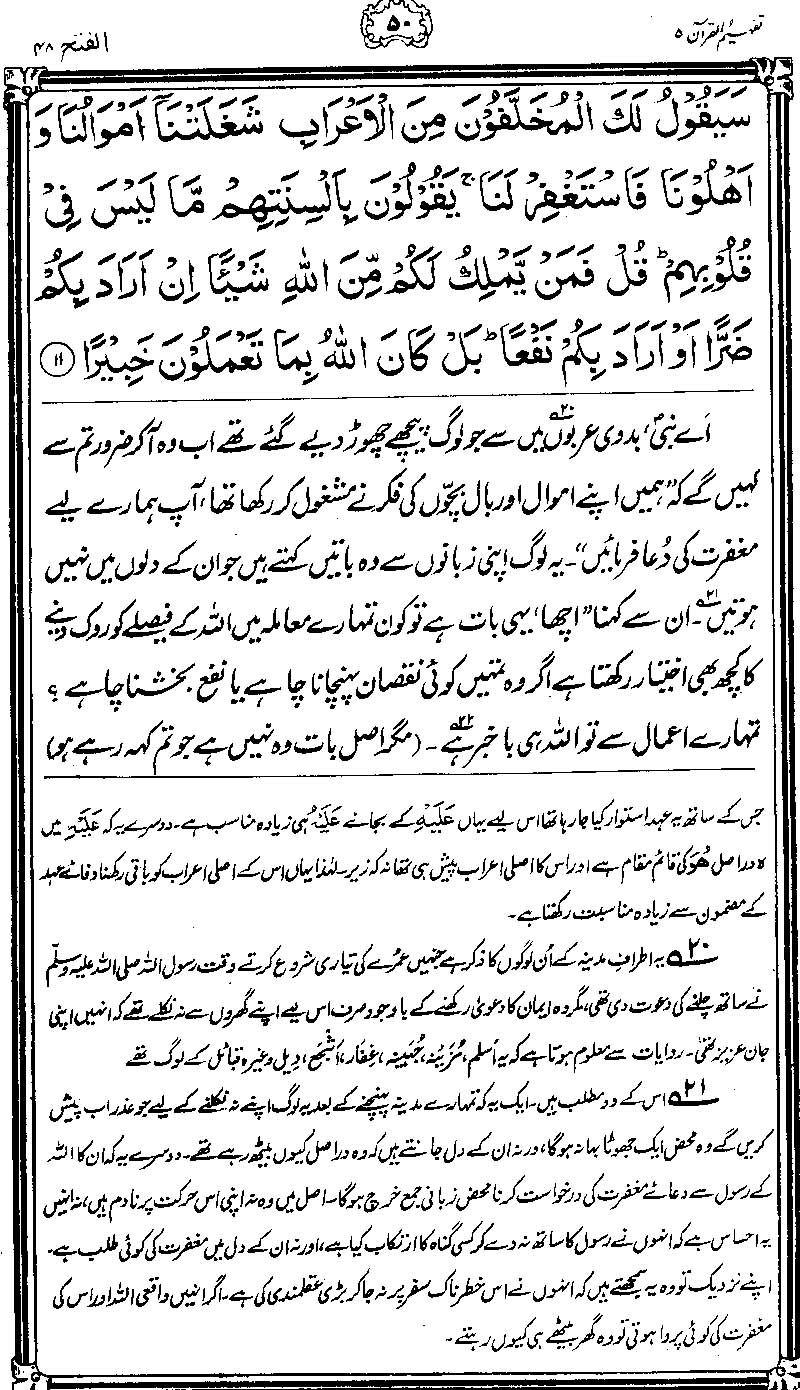 تفہیم القرآن ۵
۵۰
الفتح ۴۸
سَيَقُوْلُ لَكَ الْمُخَلَّفُوْنَ مِنَ الْاَعْرَابِ شَغَلَتْنَآ اَمْوَالُنَا وَ
اَهْلُوْنَا فَاسْتَغْفِرْ لَنَا ۚ يَقُوْلُوْنَ بِاَلْسِنَتِهِمْ مَّا لَيْسَ فِيْ
قُلُوْبِهِمْ ؕ قُلْ فَمَنْ يَّمْلِكُ لَكُمْ مِّنَ اللّٰهِ شَيْـًٔا اِنْ اَرَادَ بِكُمْ
ضَرًّا اَوْ اَرَادَ بِكُمْ نَفْعًا ؕ بَلْ كَانَ اللّٰهُ بِمَا تَعْمَلُوْنَ خَبِيْرًا ۱۱
اَے نبیؐ، بدوی عربوں۲۰ میں سے جو لوگ پیچھے چھوڑ دیے گئے تھے اب وہ آ کر ضرور تم سے
کہیں گے کہ ”ہمیں اپنے اموال اور بال بچّوں کی فکر نے مشغول کر رکھا تھا، آپ ہمارے لیے
مغفرت کی دُعا فرمائیں“۔ یہ لوگ اپنی زبانوں سے وہ باتیں کہتے ہیں جو ان کے دلوں میں نہیں
ہوتیں۲۱۔ ان سے کہنا ”اچھا، یہی بات ہے تو کون تمہارے معاملہ میں اللہ کے فیصلے کو روک دینے
کا کچھ بھی اختیار رکھتا ہے اگر وہ تمہیں کوئی نقصان پہنچانا چاہے یا نفع بخشنا چاہے؟
تمہارے اعمال سے تو اللہ ہی باخبر ہے۲۲۔ (مگر اصل بات وہ نہیں ہے جو تم کہہ رہے ہو)
جس کے ساتھ یہ عہد استوار کیا جا رہا تھا اس لیے یہاں عَلَیْہِ کے بجائے عَلَیْہُ ہی زیادہ مناسب ہے۔ دوسرے یہ کہ عَلَیْہِ میں
ہ دراصل ھُوَ کی قائم مقام ہے اور اس کا اصلی اعراب پیش ہی تھا نہ کہ زیر۔ لہٰذا یہاں اس کے اصلی اعراب کو باقی رکھنا وفائے عہد
کے مضمون سے زیادہ مناسبت رکھتا ہے۔
۲۰ یہ اطرافِ مدینہ کے اُن لوگوں کا ذکر ہے جنہیں عمرے کی تیاری شروع کرتے وقت رسول اللہ صلی اللہ علیہ وسلّم
نے ساتھ چلنے کی دعوت دی تھی، مگر وہ ایمان کا دعویٰ رکھنے کے باوجود صرف اس لیے اپنے گھروں سے نہ نکلے تھے کہ انہیں اپنی
جان عزیز تھی۔ روایات سے معلوم ہوتا ہے کہ یہ اَسلم، مُزَیْنہ، جُہَینہ، غِفار، اَشْجَع، دِیل وغیرہ قبائل کے لوگ تھے
۲۱ اس کے دو مطلب ہیں۔ ایک یہ کہ تمہارے مدینہ پہنچنے کے بعد یہ لوگ اپنے نہ نکلنے کے لیے جو عذر اب پیش
کریں گے وہ محض ایک جھوٹا بہانہ ہوگا، ورنہ ان کے دل جانتے ہیں کہ وہ دراصل کیوں بیٹھ رہے تھے۔ دوسرے یہ کہ ان کا اللہ
کے رسول سے دعائے مغفرت کی درخواست کرنا محض زبانی جمع خرچ ہوگا۔ اصل میں وہ نہ اپنی اس حرکت پر نادم ہیں، نہ انہیں
یہ احساس ہے کہ انہوں نے رسول کا ساتھ نہ دے کر کسی گناہ کا ارتکاب کیا ہے، اور نہ ان کے دل میں مغفرت کی کوئی طلب ہے۔
اپنے نزدیک تو وہ یہ سمجھتے ہیں کہ انہوں نے اس خطرناک سفر پر نہ جا کر بڑی عقلمندی کی ہے۔ اگر انہیں واقعی اللہ اور اس کی
مغفرت کی کوئی پروا ہوتی تو وہ گھر بیٹھے ہی کیوں رہتے۔